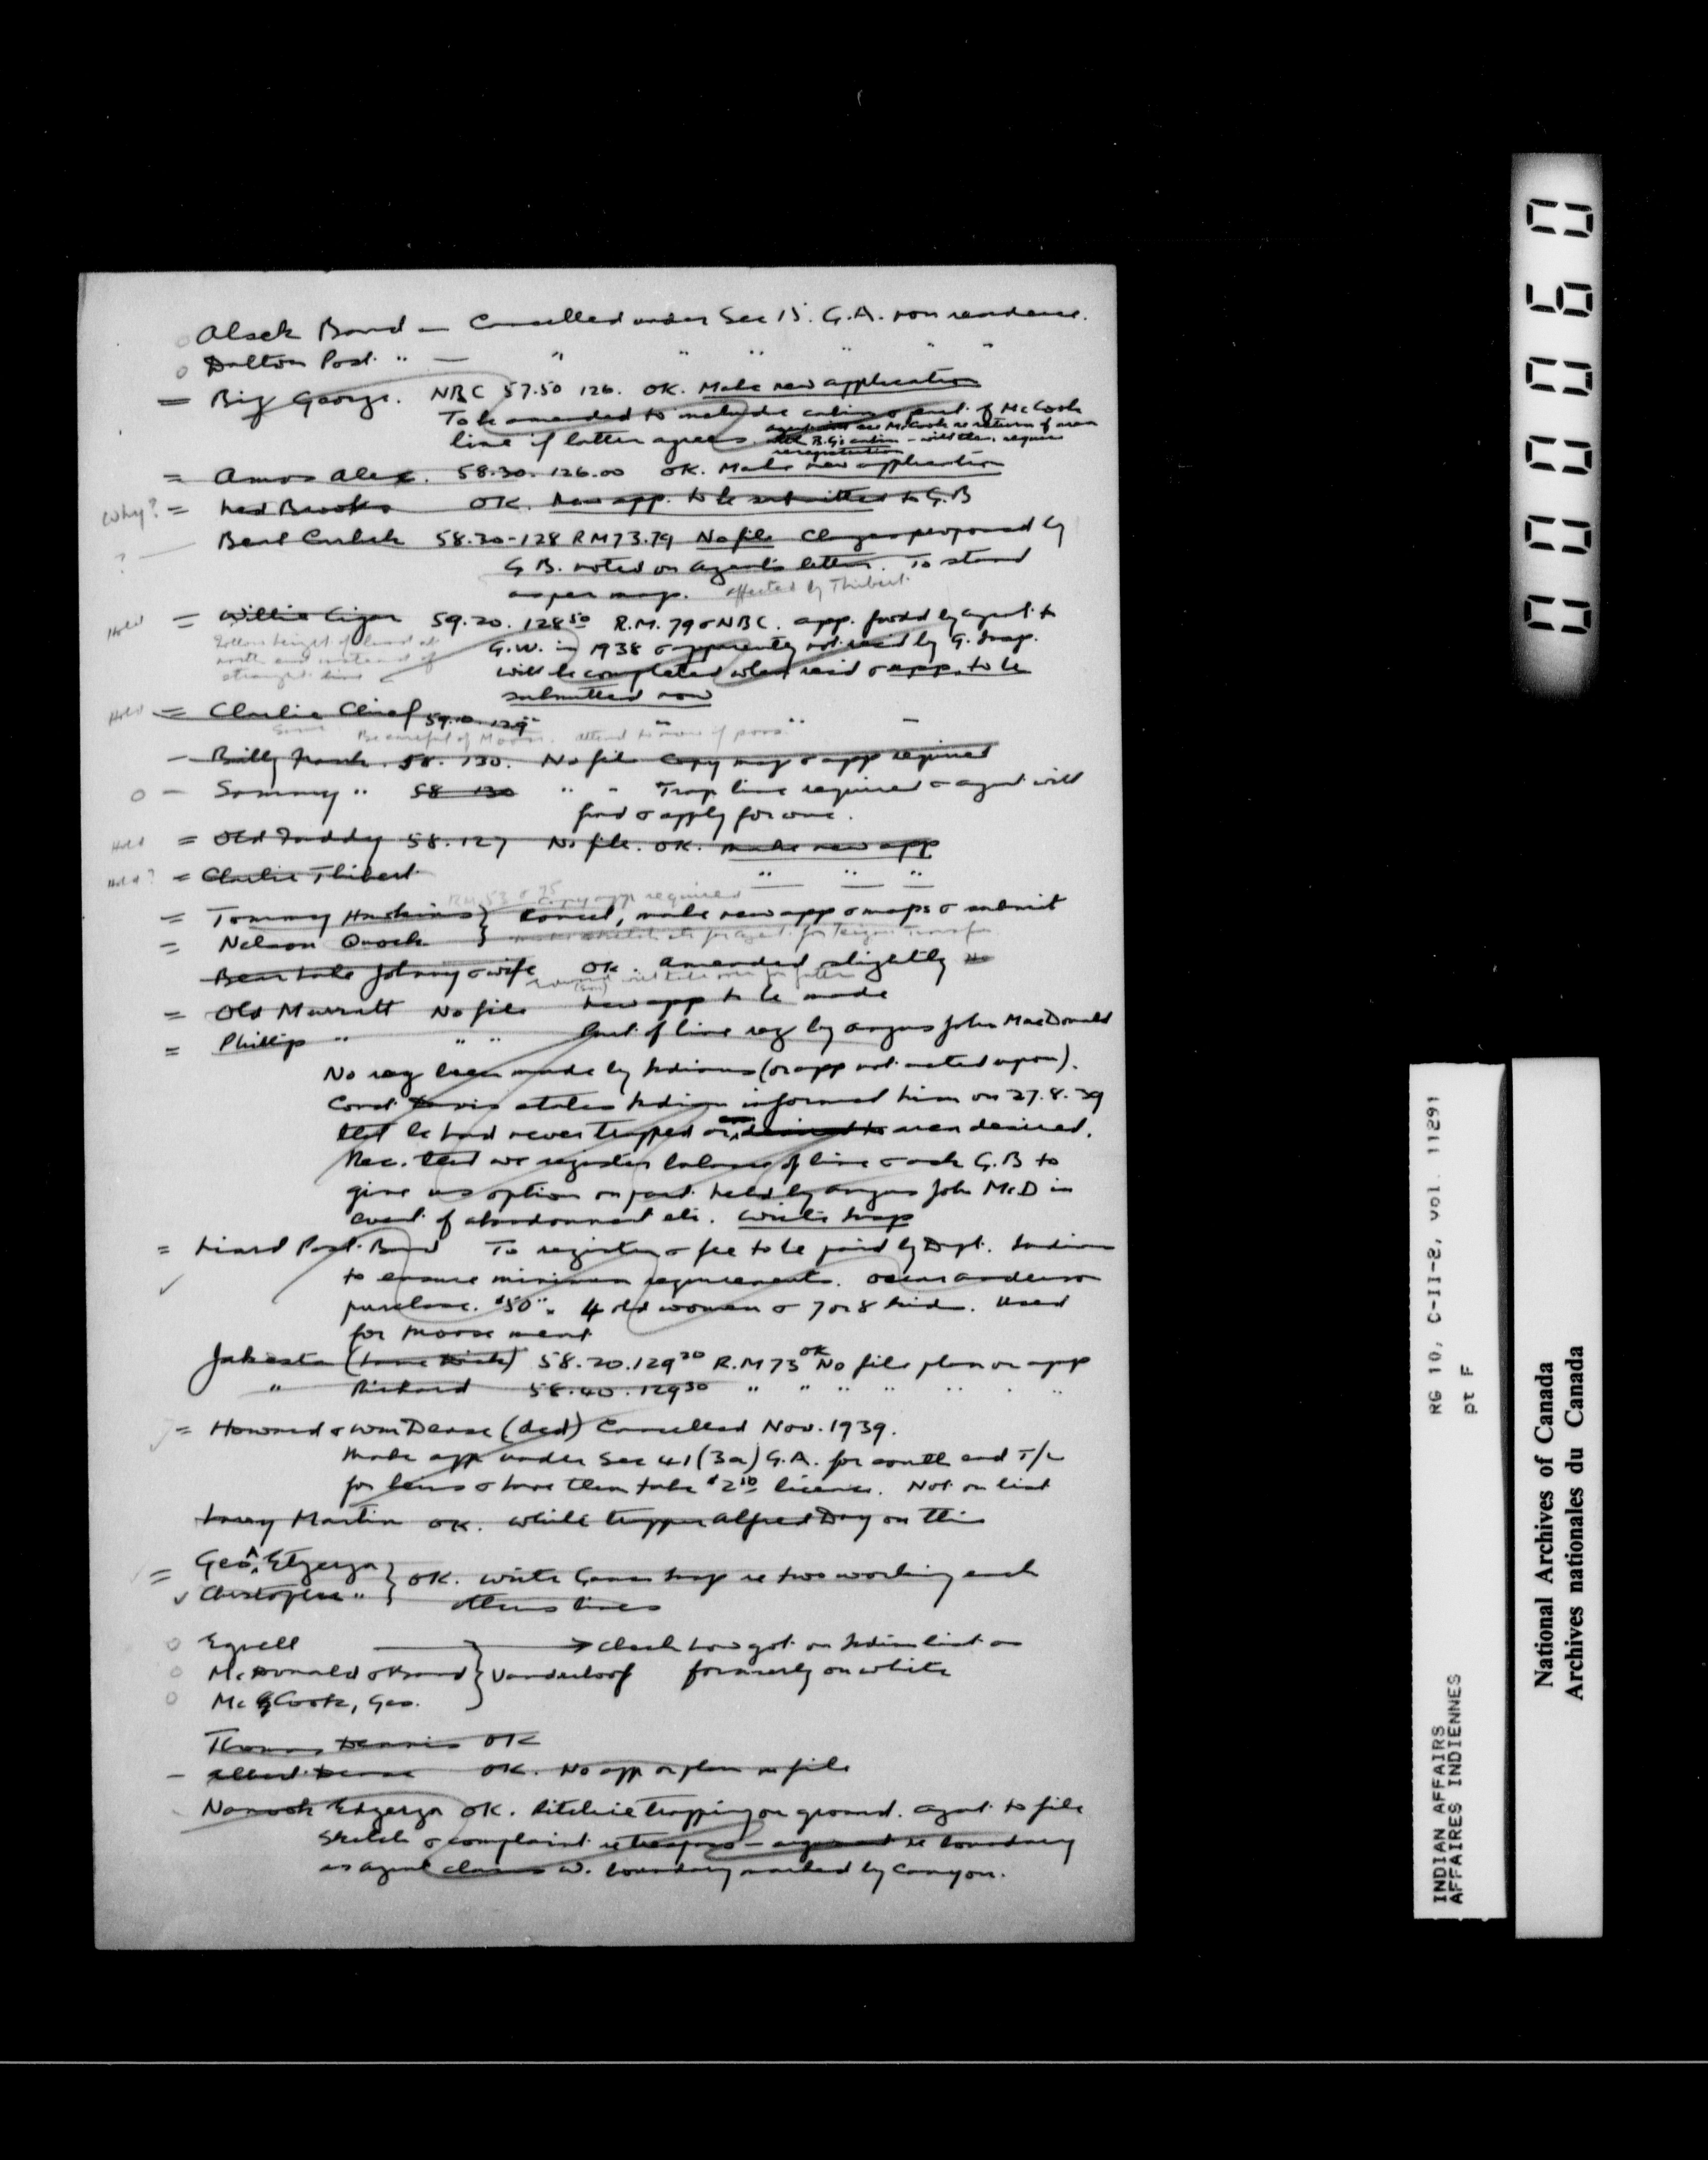 Alsek Band — Cancelled under Sec 15. G.A. non residence.
Dalton Post " — " " " " " "
= Big George. NBC 57.50 126. OK. Make new application
To be amended to include cabin & part of McCook
line if latter agrees. see McCook re return of area
B.G's cabin - will then require
reregistration
= Amos Alex. 58.30. 126.00 OK. Make new application
Why? = Ned Brooks OK. New app. to be submitted to G.B
? — Bent Carlick 58.20-128 RM73.79 No file Changes proposed by
G B. noted on agent's letter. To stand
as per map. affected by Thibert.
Hold = Willie Cigar 59.20. 128 50 R.M. 79 & NBC. app. forwd by agent to
G.W. in 1938 & apparently not recd by G. Insp.
follow height of land at
north end instead of
straight line
will be completed when recd & app. to be
submitted now
Hold = Charlie Chief 59.10. 129 " " —
Same Be careful of Moose. attend to
- Billy Frank. 58. 130. No file Copy map & app required
o - Sammy " 58 130 " " Trap line required & agent will
find & apply for one.
Hold = Old Faddy 58.127 No file. OK. make new app
Hold? = Charlie Thibert " " "
RM 53 & 75 Copy app required
= Tommy Hawkins } Cancel, make new app & maps & submit
= Nelson Quock }
Bear Lake Johnny & wife OK. Amended slightly
(son) will take over for father
= Old Marratt No file New app to be made
= Phillip " " " Part of line reg by Angus John MacDonald
No reg been made by Indians (or app not acted upon).
Const Davis states Indian informed him on 27.8.39
that he had never trapped or area desired.
Rec. that we register balance of line & ask G.B to
give us option on part held by Angus John McD in
event of abandonment etc. Write Insp
= Liard Post Band To register & fee to be paid by Dept. Indian
to ensure minimum requirements. Oscar Anderson
purchase. $50 ". 4 old women & 7 or 8 kids. Used
for moose meat
Jakesta (Lame Dick) 58.20.129 30 R.M 73 OK No file plan or app
" Richard 58.40.129 30 " " " " " " "
= Howard & Wm Dease (decd) Cancelled Nov. 1939.
Make app under Sec 41 (3a) G.A. for south end T/L
for heirs & have them take $2 50 licence. Not on list
Larry Martin OK. White trapper Alfred Day on this
= Geo. A Etzerza } OK. Write Game Insp re two working each
Christopher " } others lines
o Egnell —→ Check how got on Indian list as
o McDonald & Band } Vanderhoof formerly on white
o McCook, Geo.
Thomas Dennis OK
- Albert Dease OK. No app or plan on file
Nanook Edzerza OK. Ritchie trapping on ground. Agent to file
sketch & complaint re trespass - argument re boundary
as agent claims W. boundary marked by Canyon.
000060
RG 10, C-II-2, vol. 11291
pt F
INDIAN AFFAIRS
AFFAIRES INDIENNES
National Archives of Canada
Archives nationales du Canada